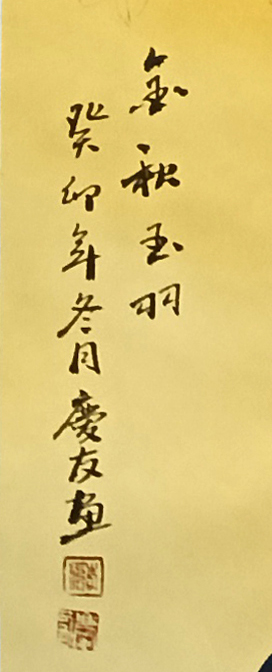 金秋玉羽
癸卯年冬月慶友画